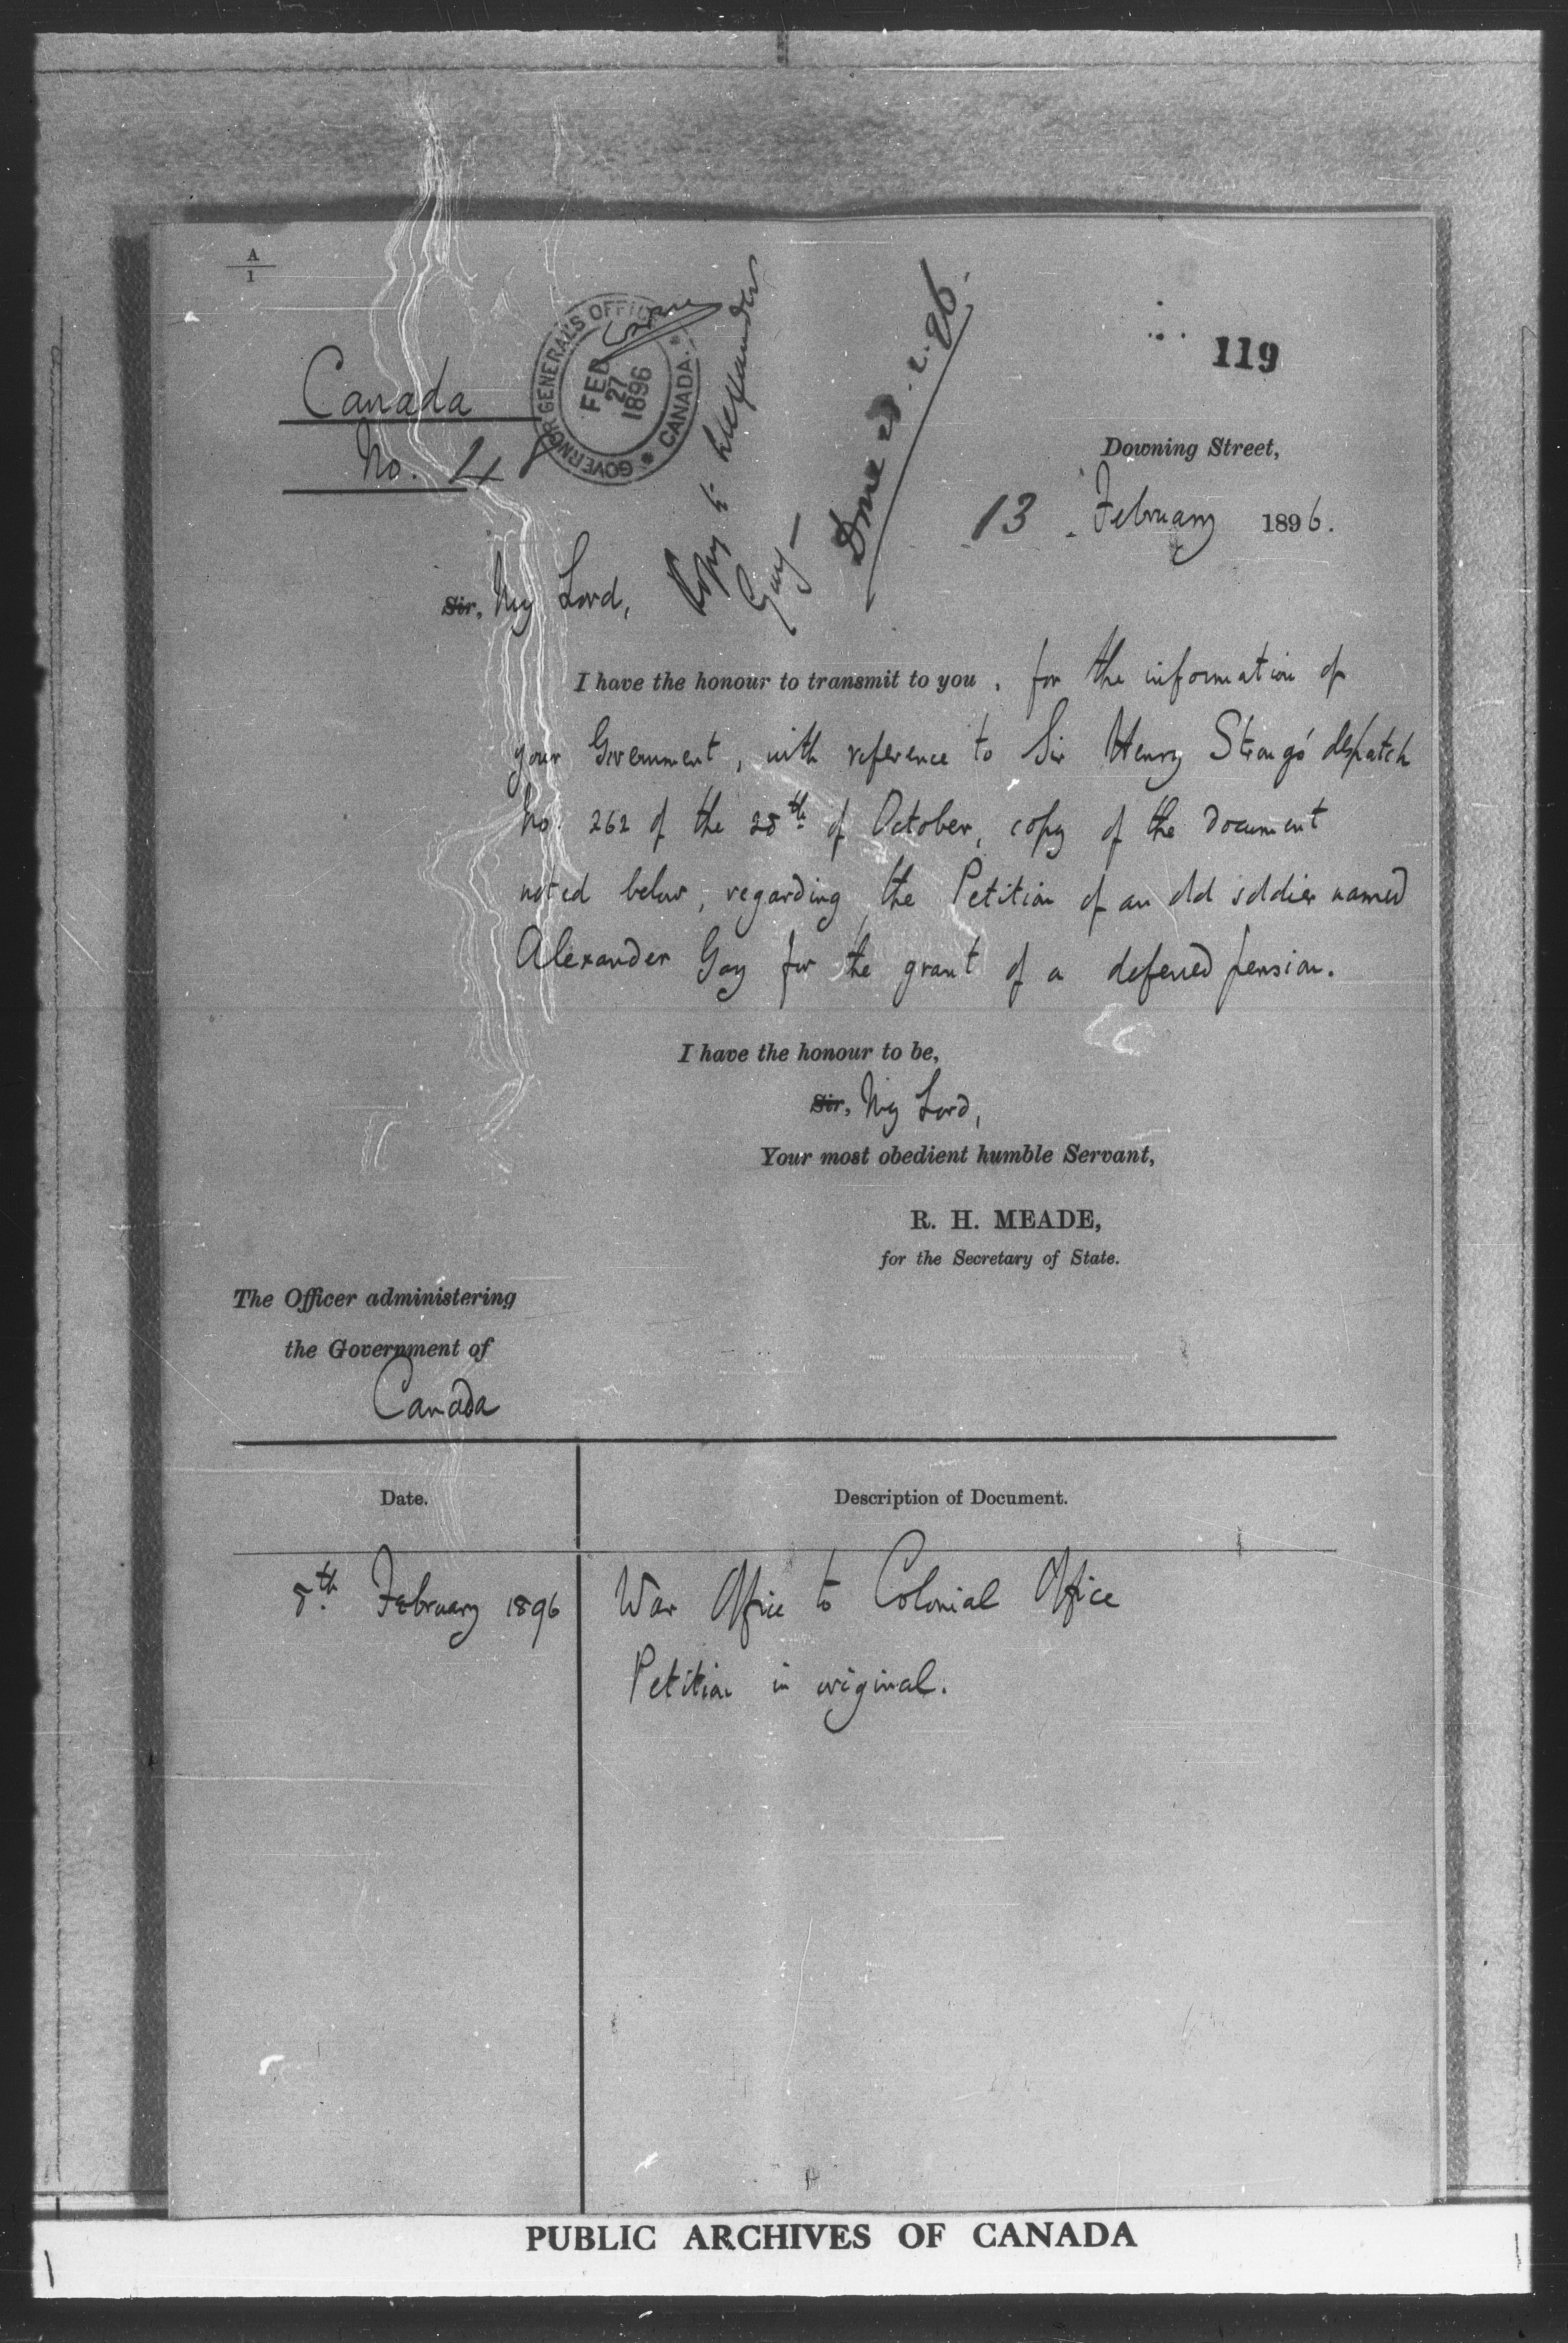 A
1
119
Canada
No. 48
GOVERNOR GENERAL'S OFFICE
* CANADA. *
FEB
27
1896
Copy to Alexander
Gay —
Done 28.2.96.
Downing Street,
13 February 1896.
Sir, My Lord,
I have the honour to transmit to you, for the information of
your Government, with reference to Sir Henry Strong's despatch
No. 262 of the 28th of October, copy of the document
noted below, regarding the Petition of an old soldier named
Alexander Gay for the grant of a deferred pension.
I have the honour to be,
Sir, My Lord,
Your most obedient humble Servant,
R. H. MEADE,
for the Secretary of State.
The Officer administering
the Government of
Canada
Date.
Description of Document.
8th February 1896
War Office to Colonial Office
Petition in original.
PUBLIC ARCHIVES OF CANADA